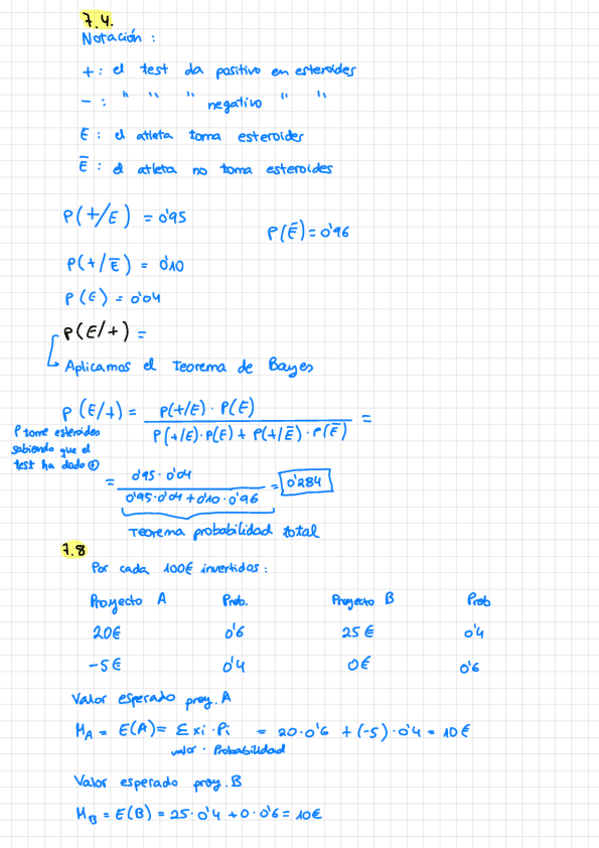 7.4.
Notación :
+ : el test da positivo en esteroides
- : " " " negativo " "
E : el atleta toma esteroides
Ē : el atleta no toma esteroides
P(+/E) = 0'95
P(Ē) = 0'96
P(+/Ē) = 0'10
P(E) = 0'04
P(E/+) =
Aplicamos el Teorema de Bayes
P(E/+) = P(+/E) · P(E) / P(+/E)·P(E) + P(+/Ē) · P(Ē) =
P tome esteroides
sabiendo que el
test ha dado ⊕
= 0'95 · 0'04 / 0'95·0'04 + 0'10·0'96 = 0'284
Teorema probabilidad total
7.8
Por cada 100€ invertidos :
Proyecto A Prob. Proyecto B Prob
20€ 0'6 25€ 0'4
-5€ 0'4 0€ 0'6
Valor esperado proy. A
M_A = E(A) = Σ xi · Pi = 20·0'6 + (-5)·0'4 = 10€
valor · Probabilidad
Valor esperado proy. B
M_B = E(B) = 25·0'4 + 0·0'6 = 10€